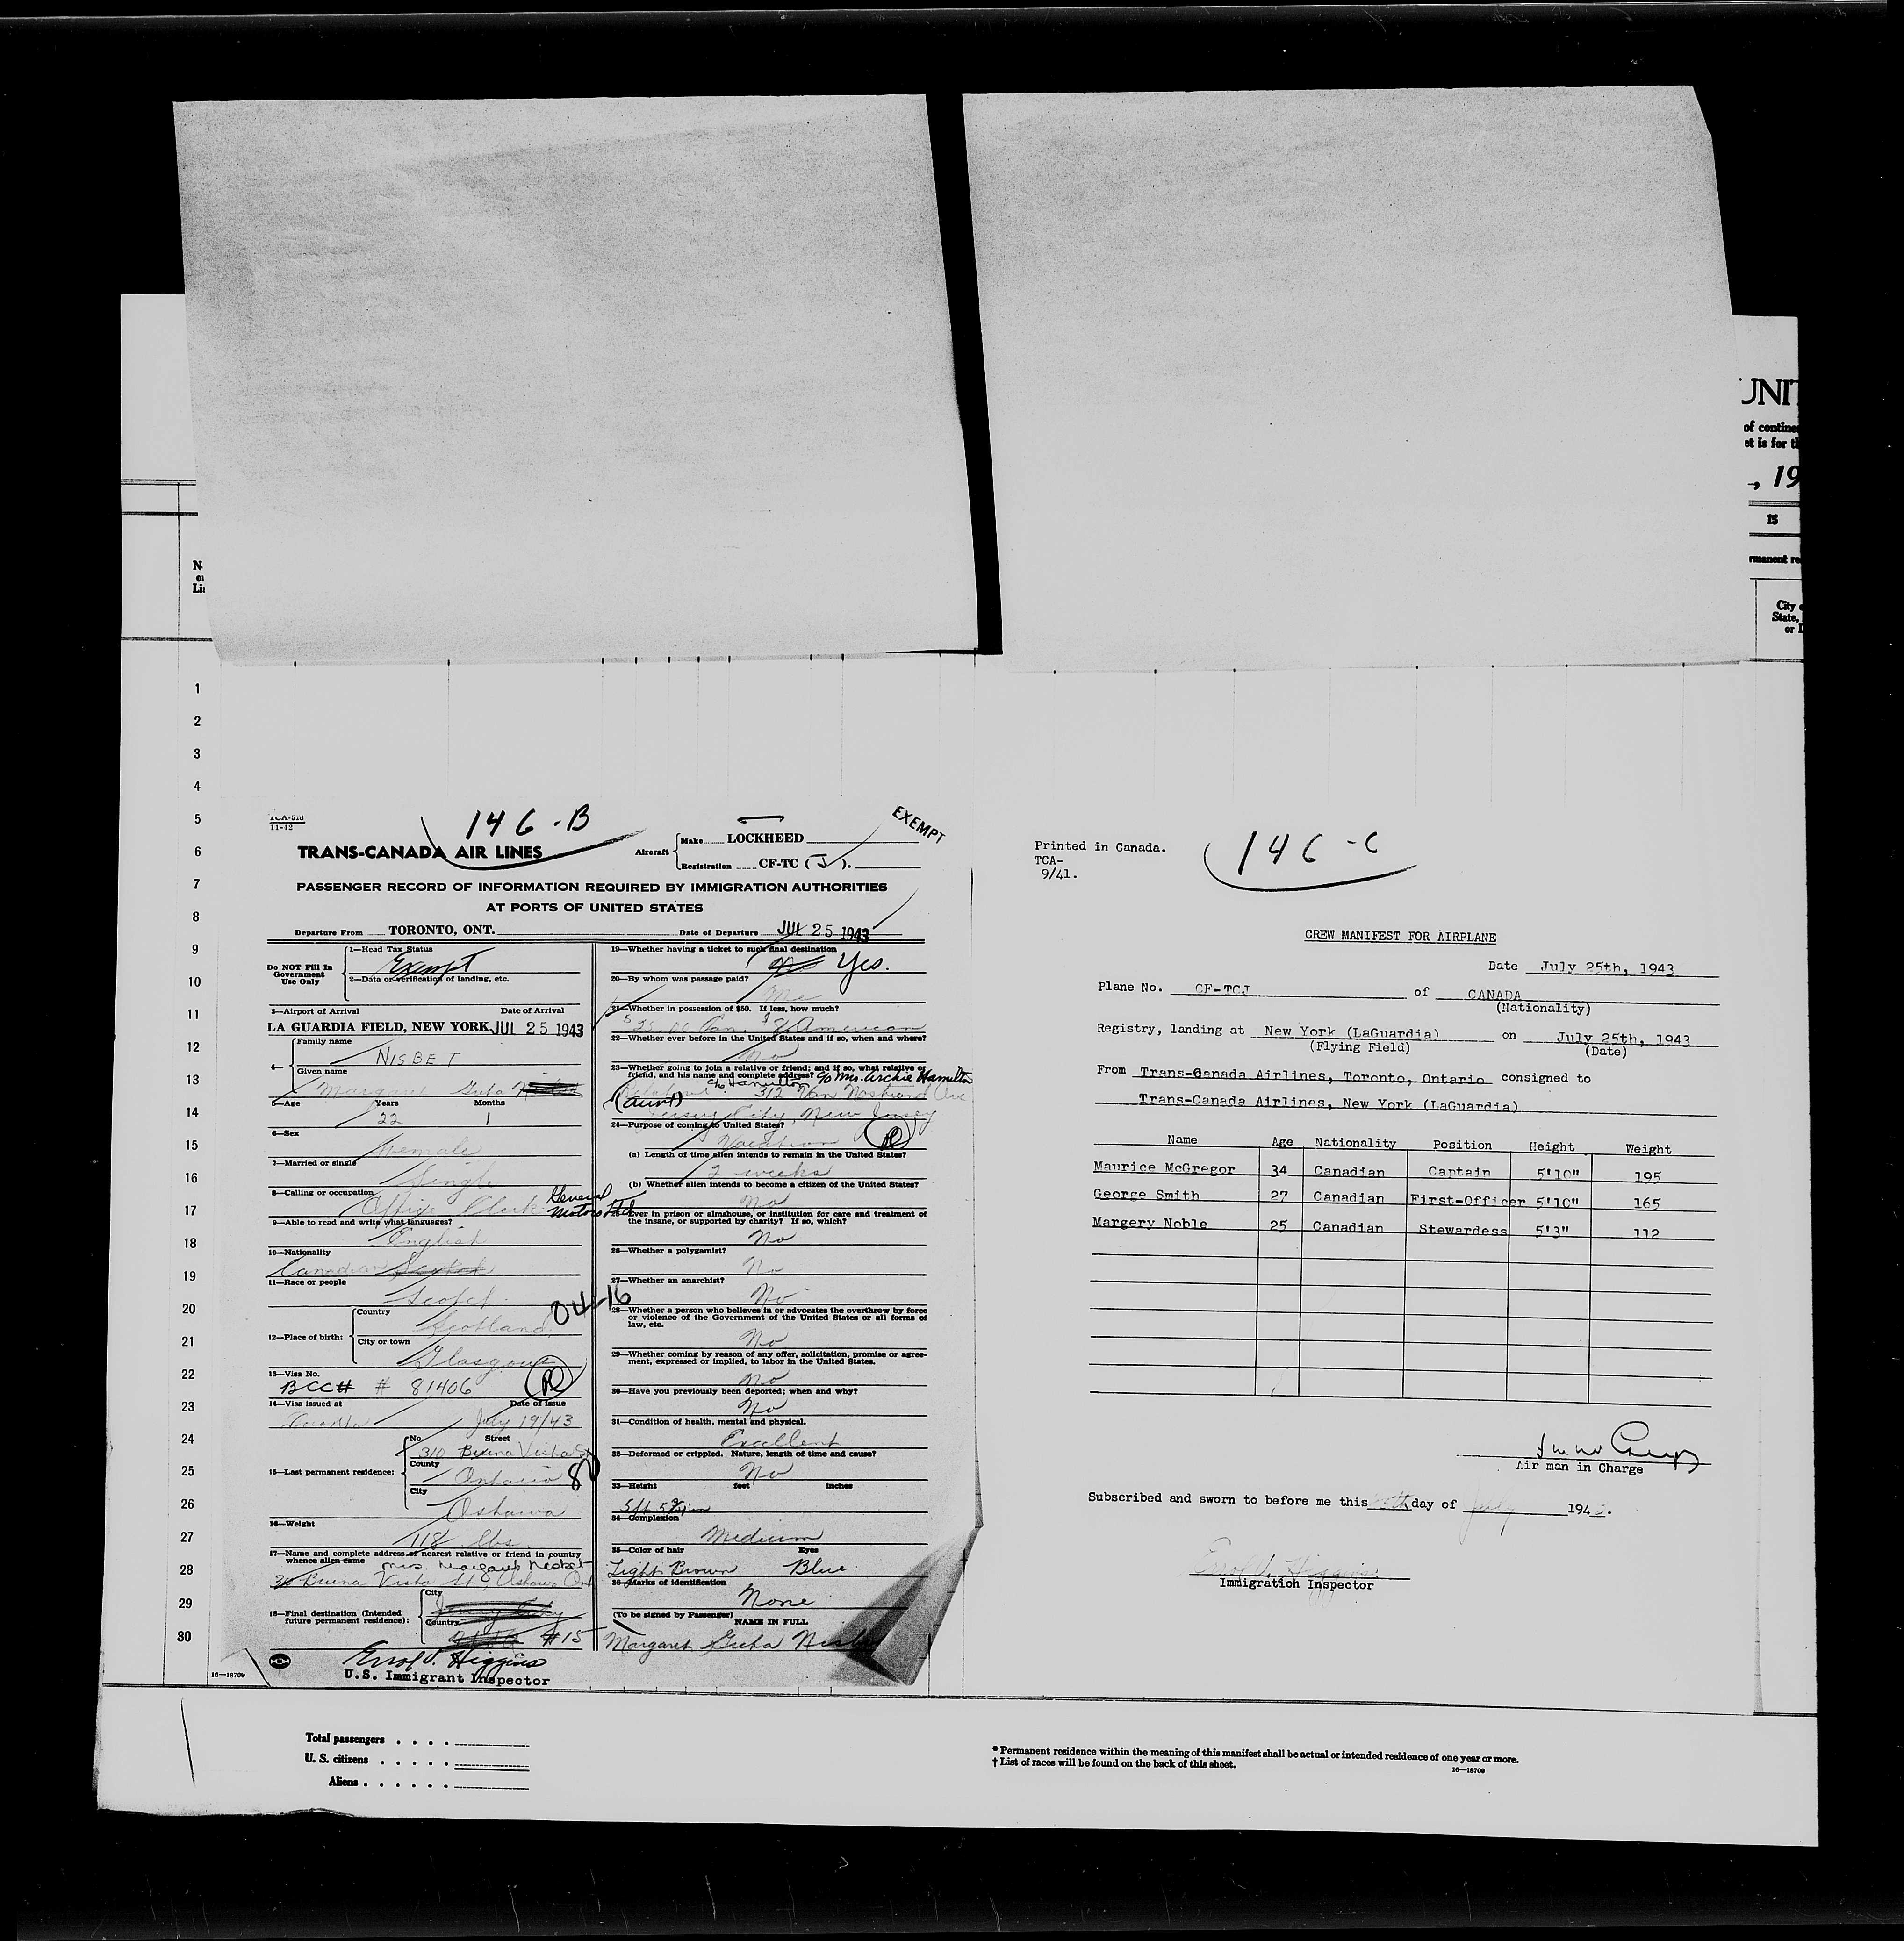 UNIT
of contine
et is for th
, 19
15
rmanent re
City
State,
or D
N
or
Li
1
2
3
4
5
6
7
8
9
10
11
12
13
14
15
16
17
18
19
20
21
22
23
24
25
26
27
28
29
30
11-12
146-B
EXEMPT
TRANS-CANADA AIR LINES
Aircraft
Make LOCKHEED
Registration CF-TC (J).
PASSENGER RECORD OF INFORMATION REQUIRED BY IMMIGRATION AUTHORITIES
AT PORTS OF UNITED STATES
Departure From TORONTO, ONT. Date of Departure JUL 25 1943
Do NOT Fill In
Government
Use Only
1—Head Tax Status
Exempt
2—Data or verification of landing, etc.
3—Airport of Arrival Date of Arrival
LA GUARDIA FIELD, NEW YORK JUL 25 1943
4—
Family name
NISBET
Given name
Margaret Greta
5—Age Years Months
22 1
6—Sex
Female
7—Married or single
Single
8—Calling or occupation
Office Clerk General Motors Ltd
9—Able to read and write what languages?
English
10—Nationality
Canadian
11—Race or people
Scotch
04-16
12—Place of birth:
Country
Scotland
City or town
Glasgow
13—Visa No.
BCC# # 81406 R
14—Visa issued at Date of Issue
Toronto July 19/43
15—Last permanent residence:
No. Street
310 Buena Vista St
County
Ontario
City
Oshawa
16—Weight
118 lbs.
17—Name and complete address of nearest relative or friend in country
whence alien came Mrs. Margaret Nisbet
310 Buena Vista St, Oshawa Ont
18—Final destination (Intended
future permanent residence):
City
Jersey City
Country
#15
Errol S. Higgins
U.S. Immigrant Inspector
16—18709
19—Whether having a ticket to such final destination
Yes.
20—By whom was passage paid?
Me
21—Whether in possession of $50. If less, how much?
Can. American
22—Whether ever before in the United States and if so, when and where?
No
23—Whether going to join a relative or friend; and if so, what relative or
friend, and his name and complete address? c/o Mrs. Archie Hamilton
c/o Hamilton 312 Van Nostrand Ave
(aunt) Jersey City, New Jersey
24—Purpose of coming to United States?
Vacation R
(a) Length of time alien intends to remain in the United States?
2 weeks
(b) Whether alien intends to become a citizen of the United States?
No
25—Ever in prison or almshouse, or institution for care and treatment of
the insane, or supported by charity? If so, which?
No
26—Whether a polygamist?
No
27—Whether an anarchist?
No
28—Whether a person who believes in or advocates the overthrow by force
or violence of the Government of the United States or all forms of
law, etc.
No
29—Whether coming by reason of any offer, solicitation, promise or agree-
ment, expressed or implied, to labor in the United States.
No
30—Have you previously been deported; when and why?
No
31—Condition of health, mental and physical.
Excellent
32—Deformed or crippled. Nature, length of time and cause?
No
33—Height feet inches
34—Complexion
Medium
35—Color of hair Eyes
Light Brown Blue
36—Marks of identification
None
(To be signed by Passenger) NAME IN FULL
Margaret Greta Nisbet
Printed in Canada.
TCA-
9/41.
146-C
CREW MANIFEST FOR AIRPLANE
Date July 25th, 1943
Plane No. CF-TCJ of CANADA
(Nationality)
Registry, landing at New York (LaGuardia) on July 25th, 1943
(Flying Field) (Date)
From Trans-Canada Airlines, Toronto, Ontario consigned to
Trans-Canada Airlines, New York (LaGuardia)
Name Age Nationality Position Height Weight
Maurice McGregor 34 Canadian Captain 5'10" 195
George Smith 27 Canadian First-Officer 5'10" 165
Margery Noble 25 Canadian Stewardess 5'3" 112
Air man in Charge
Subscribed and sworn to before me this day of July 194
Errol S. Higgins
Immigration Inspector
Total passengers
U. S. citizens
Aliens
* Permanent residence within the meaning of this manifest shall be actual or intended residence of one year or more.
† List of races will be found on the back of this sheet.
16—18709